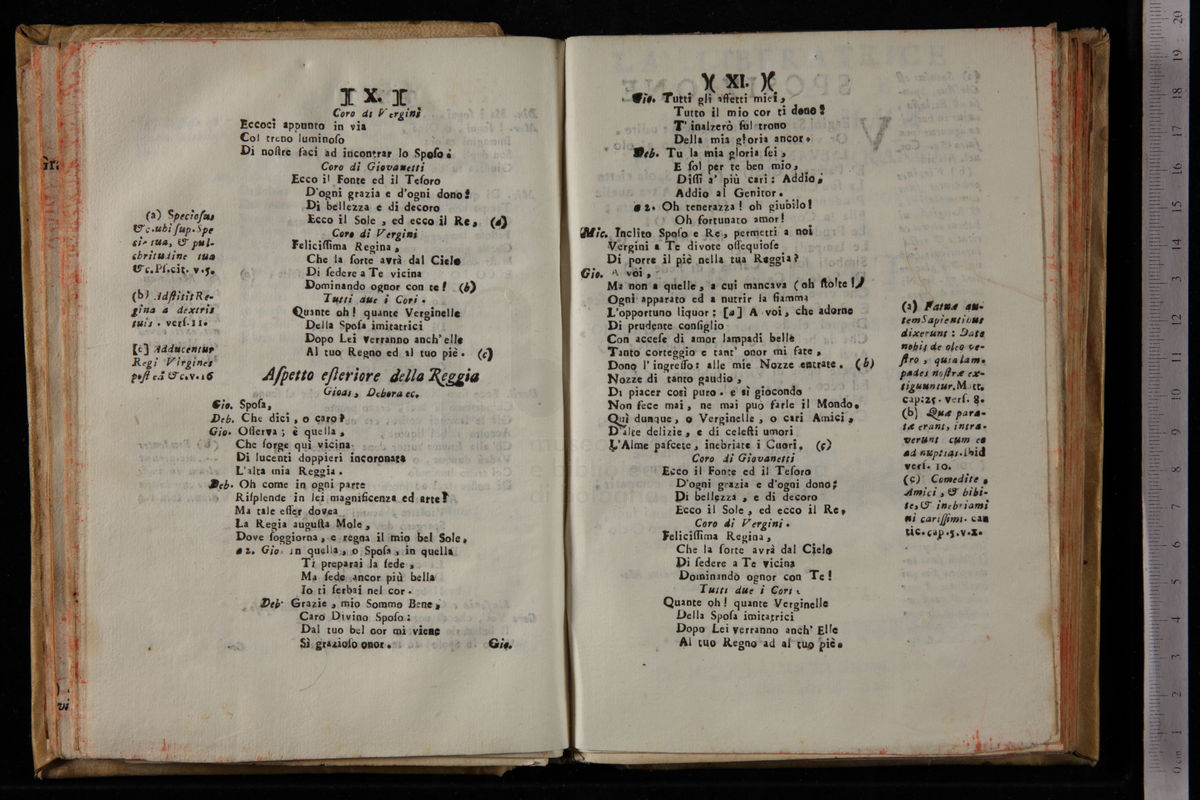 X.
Coro di Vergini
Eccoci appunto in via
Col treno luminoſo
Di noſtre faci ad incontrar lo Spoſo.
Coro di Giovanetti
Ecco il Fonte ed il Teſoro
D'ogni grazia e d'ogni dono:
Di bellezza e di decoro
Ecco il Sole, ed ecco il Re, (a)
Coro di Vergini
Feliciſſima Regina,
Che la ſorte avrà dal Cielo
Di ſedere a Te vicina
Dominando ognor con te! (b)
Tutti due i Cori.
Quante oh! quante Verginelle
Della Spoſa imitatrici
Dopo Lei verranno anch'elle
Al tuo Regno ed al tuo piè. (c)
Aſpetto eſteriore della Reggia
Gioas, Debora ec.
Gio. Spoſa,
Deb. Che dici, o caro?
Gio. Oſſerva; è quella,
Che ſorge quì vicina
Di lucenti doppieri incoronata
L'alta mia Reggia.
Deb. Oh come in ogni parte
Riſplende in lei magnificenza ed arte!
Ma tale eſſer dovea
La Regia auguſta Mole,
Dove ſoggiorna, e regna il mio bel Sole.
a 2. Gio. In quella, o Spoſa, in quella
Ti preparai la ſede,
Ma ſede ancor più bella
Io ti ſerbai nel cor.
Deb. Grazie, mio Sommo Bene,
Caro Divino Spoſo:
Dal tuo bel cor mi viene
Sì grazioſo onor.
Gio.
(a) Specioſus
&c. ubi ſup. Spe
cie tua, & pul-
chritudine tua
&c. Pſ. cit. v. 5.
(b) Adſtitit Re-
gina a dextris
tuis. verſ. 11.
[c] Adducentur
Regi Virgines
poſt eã &c. v. 16
XI.
Gio. Tutti gli affetti miei,
Tutto il mio cor ti dono:
T' inalzerò ſul trono
Della mia gloria ancor.
Deb. Tu la mia gloria ſei,
E ſol per te ben mio,
Diſſi a' più cari: Addio,
Addio al Genitor.
a 2. Oh tenerazza! oh giubilo!
Oh fortunato amor!
Mic. Inclito Spoſo e Re, permetti a noi
Vergini a Te divote oſſequioſe
Di porre il piè nella tua Reggia?
Gio. A voi,
Ma non a quelle, a cui mancava (oh ſtolte!)
Ogni apparato ed a nutrir la fiamma
L'opportuno liquor: [a] A voi, che adorne
Di prudente conſiglio
Con acceſe di amor lampadi belle
Tanto corteggio e tant' onor mi fate,
Dono l'ingreſſo: alle mie Nozze entrate. (b)
Nozze di tanto gaudio,
Di piacer così puro. e sì giocondo
Non fece mai, ne mai può farle il Mondo.
Quì dunque, o Verginelle, o cari Amici,
D'alte delizie, e di celeſti umori
L'Alme paſcete, inebriate i Cuori. (c)
Coro di Giovanetti
Ecco il Fonte ed il Teſoro
D'ogni grazia e d'ogni dono;
Di bellezza, e di decoro
Ecco il Sole, ed ecco il Re,
Coro di Vergini.
Feliciſſima Regina,
Che la ſorte avrà dal Cielo
Di ſedere a Te vicina
Dominandò ognor con Te!
Tutti due i Cori.
Quante oh! quante Verginelle
Della Spoſa imitatrici
Dopo Lei verranno anch' Elle
Al tuo Regno ad al tuo piè.
(a) Fatuæ au-
tem Sapientibus
dixerunt: Date
nobis de oleo ve-
ſtro, quia lam-
pades noſtræ ex-
tiguuntur. Matt.
cap. 25. verſ. 8.
(b) Quæ para-
tæ erant, intra-
verunt cum eo
ad nuptias. Ibid
verſ. 10.
(c) Comedite,
Amici, & bibi-
te, & inebriami
ni cariſſimi. can
tic. cap. 5. v. 1.